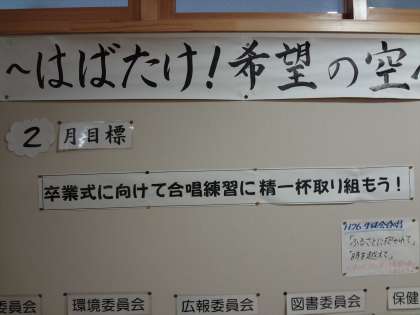 ～はばたけ！希望の空へ
2
月目標
卒業式に向けて合唱練習に精一杯取り組もう！
「ふるさとにだかれて」
環境委員会
広報委員会
図書委員会
保健
委員会